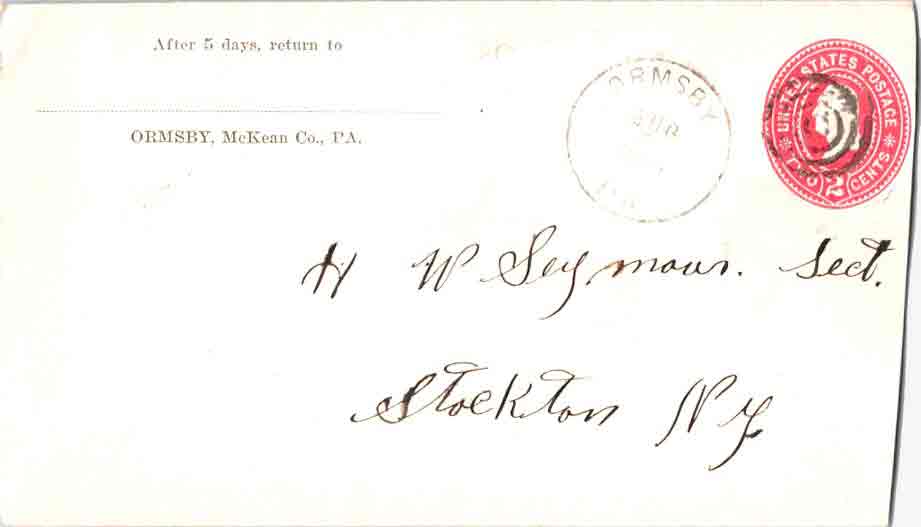 After 5 days, return to
ORMSBY, McKean Co., PA.
ORMSBY
UNITED STATES POSTAGE
TWO 2 CENTS
H W Seymour. Sect.
Stockton NY